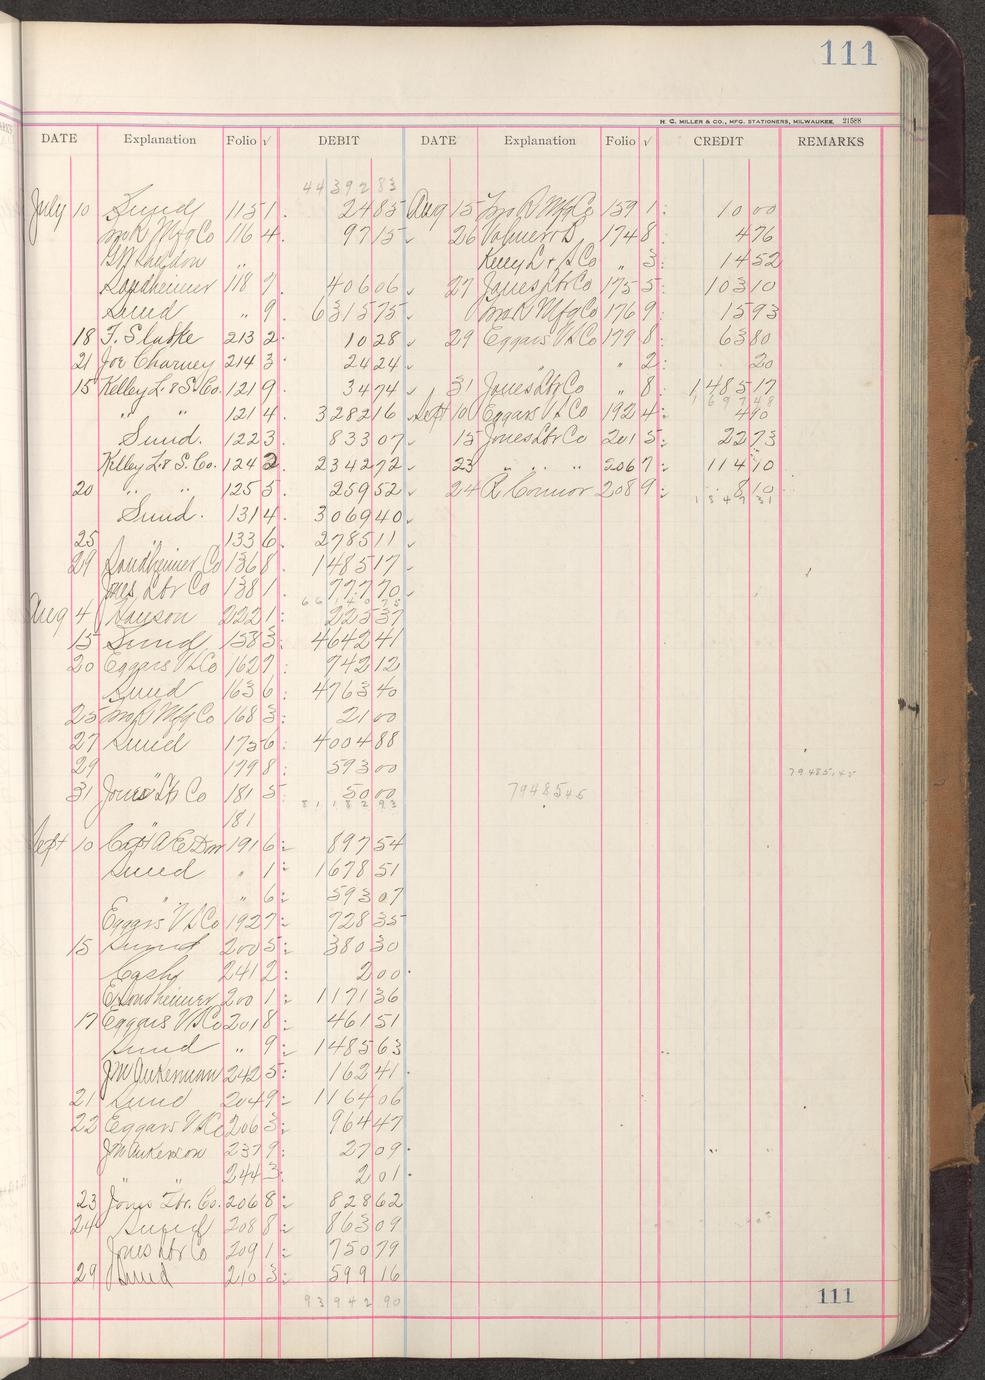 111
H. C. MILLER & CO., MFG. STATIONERS, MILWAUKEE. 21588
DATE Explanation Folio √ DEBIT DATE Explanation Folio √ CREDIT REMARKS
44392 83
July 10 Sund 115 1. 24 85 Aug 15 Mfg Co 159 1: 10 00
Mfg Co 116 4. 97 15 26 174 8: 4 76
„ Kelley L & S Co „ 3: 14 52
Sondheimer 118 7 406 06 27 Jones Lbr Co 175 5: 103 10
Sund „ 9. 6315 75 Mfg Co 176 9: 15 93
18 213 2. 10 28 29 Eggars V S Co 179 8: 63 80
21 Joe Charney 214 3. 24 24 „ 2: 20
15 Kelley L. & S. Co. 121 9 34 74 31 Jones Lbr Co „ 8: 1485 17
1697 48
„ „ 121 4 3282 16 Sept 10 Eggars V S Co 192 4: 4 90
Sund. 122 3 833 07 15 Jones Lbr Co 201 5: 22 73
Kelley L. & S. Co. 124 2. 2342 72 23 „ „ „ 206 7: 114 10
20 „ „ 125 5 259 52 24 R Connor 208 9: 8 10
Sund. 131 4 3069 40
25 133 6 2785 11
29 Sondheimer Co 136 8 1485 17
Jones Lbr Co 138 1. 777 70
Aug 4 222 1: 225 37
15 Sund 158 3: 4642 41
20 Eggars V S Co 162 7: 742 12
Sund 163 6: 4763 40
25 Mfg Co 168 3: 21 00
27 Sund 175 6: 4004 88
29 179 8: 593 00
79485.45
31 Jones Lb Co 181 5: 50 00 79485 45
81182 93
181
Sept 10 191 6: 897 54
Sund „ 1: 1678 51
„ „ 6: 593 07
Eggars V S Co 192 7: 728 35
15 Sund 200 5: 380 30
Cash 241 2: 2 00
E Sondheimer 200 1: 1171 36
17 Eggars V S Co 201 8: 461 51
Sund „ 9: 1485 63
J M Aukerman 242 5: 162 41
21 Sund 204 9: 1164 06
22 Eggars V S Co 206 3: 964 47
J M 237 9: 27 09
244 3: 2 01
23 Jones Lbr. Co. 206 8: 828 62
24 Sund 208 8: 863 09
Jones Lbr Co 209 1: 750 79
29 Sund 210 3: 599 16
93942 90
111